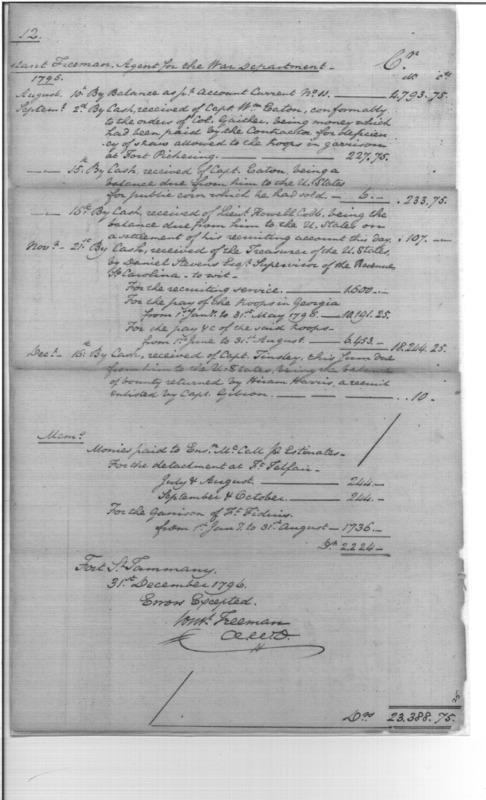 12.
stant Freeman, Agent for the War Department - Cr.
1796.
August. 10th By Balance as pr. Account Current No. 11. 4,793.75.
Septemr. 2nd By Cash, received of Capt. Wm. Eaton, conformably
to the orders of Col. Gaither, being money which
had been paid by the Contractor for deficien-
cy of straw allowed to the troops in garrison
at Fort Pickering. 227.75.
15th By Cash, received of Capt. Eaton, being a
balance due from him to the U. States
for public corn which he had sold. 6.- . 233.75.
16th By Cash, received of Lieut. Howell Cobb, being the
balance due from him to the U. States on
a settlement of his recruiting account this day. 107.-
Novr. 21st By Cash, received of the Treasurer of the U. States,
by Daniel Stevens Esqr. Supervisor of the Revenue
So. Carolina - to wit -
For the recruiting service. 1600.-
For the pay of the troops in Georgia
from 1st Jany. to 31st May 1796. 10,191.25.
For the pay &c of the said troops
from 1st June to 31st August. 6,453.- 18,244.25.
Decr. 16th By Cash, received of Capt. Tinsley, this sum due
from him to the U. States, being the balance
of bounty returned by Hiram Harris, a recruit
enlisted by Capt. Gibson. 10.-
Memo.
Monies paid to Ensn. McCall pr Estimates -
For the detachment at Ft. Telfair -
July & August. 244.-
September & October. 244.-
For the Garrison of Ft. Fidius.
from 1st Jany. to 31st August - 1736.-
Drs 2224.-
Fort St. Tammany.
31st December 1796.
Errors Excepted.
Const. Freeman
A.W.D.
Drs 23,388.75.